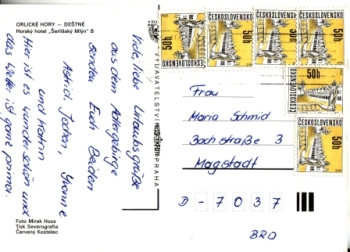 ORLICKÉ HORY — DEŠTNÉ
Horský hotel „Šerlišský Mlýn" B
Viele, liebe Urlaubsgrüße
aus dem Adlergebirge
senden Euch Beiden
Astrid, Jochen, Yvonne
und Katrin
Hier ist es wunderschön und
das Wetter ist ganz prima.
Foto Mirek Hoza
Tisk Severografia
Červený Kostelec
PRAHA
ČESKOSLOVENSKO
50h
ČESKOSLOVENSKO
50h
ČESKOSLOVENSKO
50h
ČESKOSLOVENSKO
50h
ČESKOSLOVENSKO
50h
ČESKOSLOVENSKO
50h
Frau
Maria Schmid
Bachstraße 3
Magstadt
D-7037
BRD